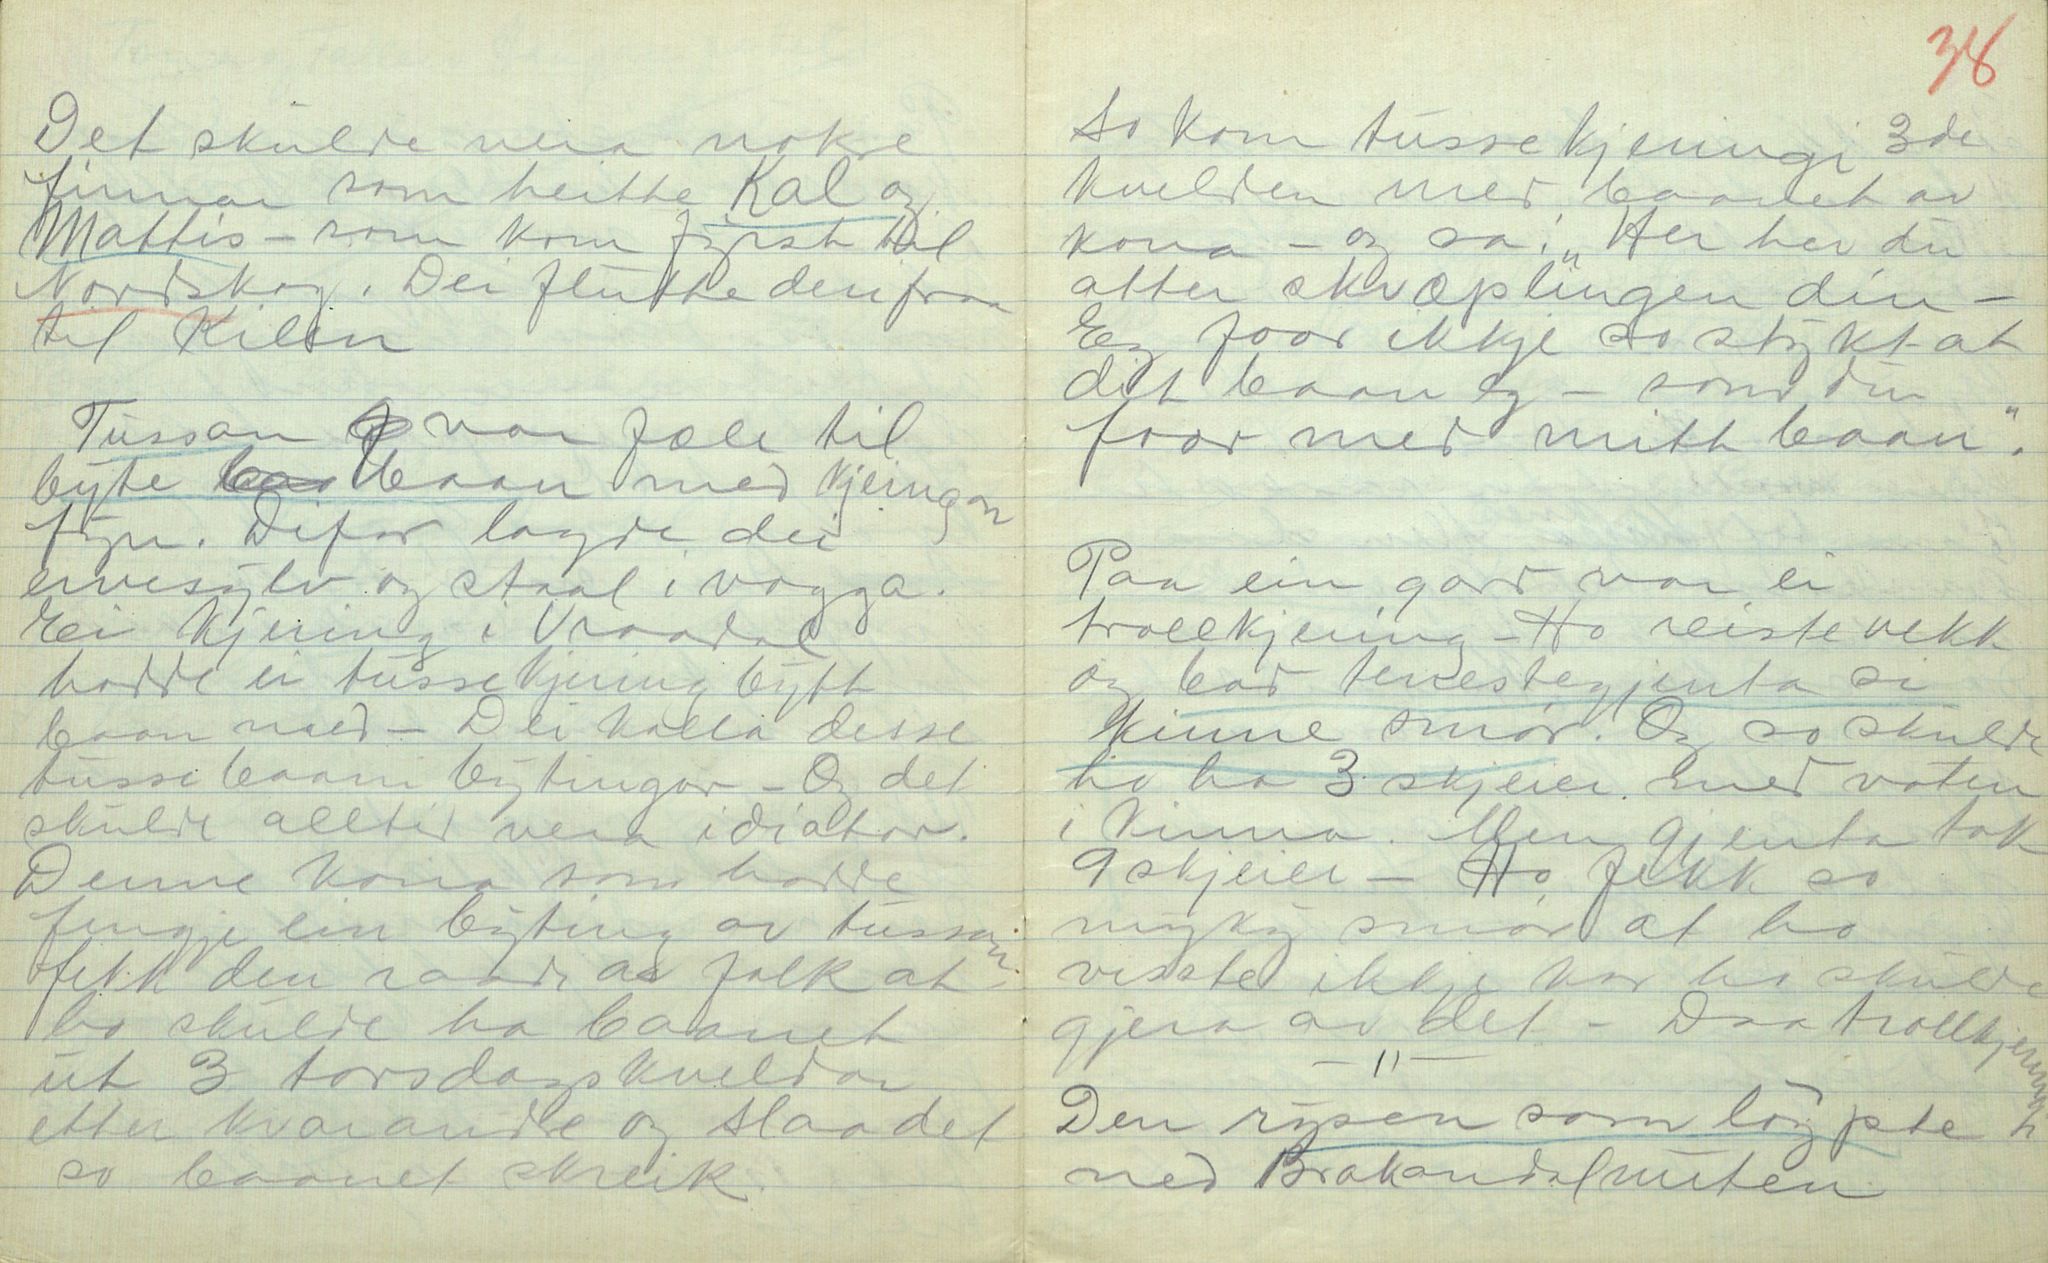 Det skulde vera nokre
finnar som heitte Kal og
Mattis – som kom fyrst til
Nordskog. Dei flutte derifraa
til Kilen
Tussan var fæle til
byte baan med kjeringan
fyr. Difor lagde dei
ervesylv og staal i vogga.
Ei kjering i Vraadal
hadde ei tussekjering bytt
baan med – Dei kalla desse
tussebaani bytingar – Og det
skulde alltid vera idiotar.
Denne kona som hadde
fengje ein byting av tussan
fekk den raad av folk at
ho skulde ha baanet
ut 3 torsdagskveldar
etter kvarandre og slaa det
so baanet skreik.
38
So kom tussekjeringi 3de
kvelden med baanet av
kona – og sa: "Her her du
atter skvæplingen din –
Eg foor ikkje so stykt at
dit baan eg – som du
foor med mitt baan".
Paa ein gard var ei
trollkjering – Ho reiste vekk
og bad tenestegjenta si
kinne smør. Og so skulde
ho ha 3 skjeier med vaten
i kinna. Men gjenta tok
9 skjeier – Ho fekk so
myky smør at ho
visste ikkje kor ho skulde
gjera av det – Daa trollkjeringi
– " –
Den rysen som løypte
ned Brokandalnuten